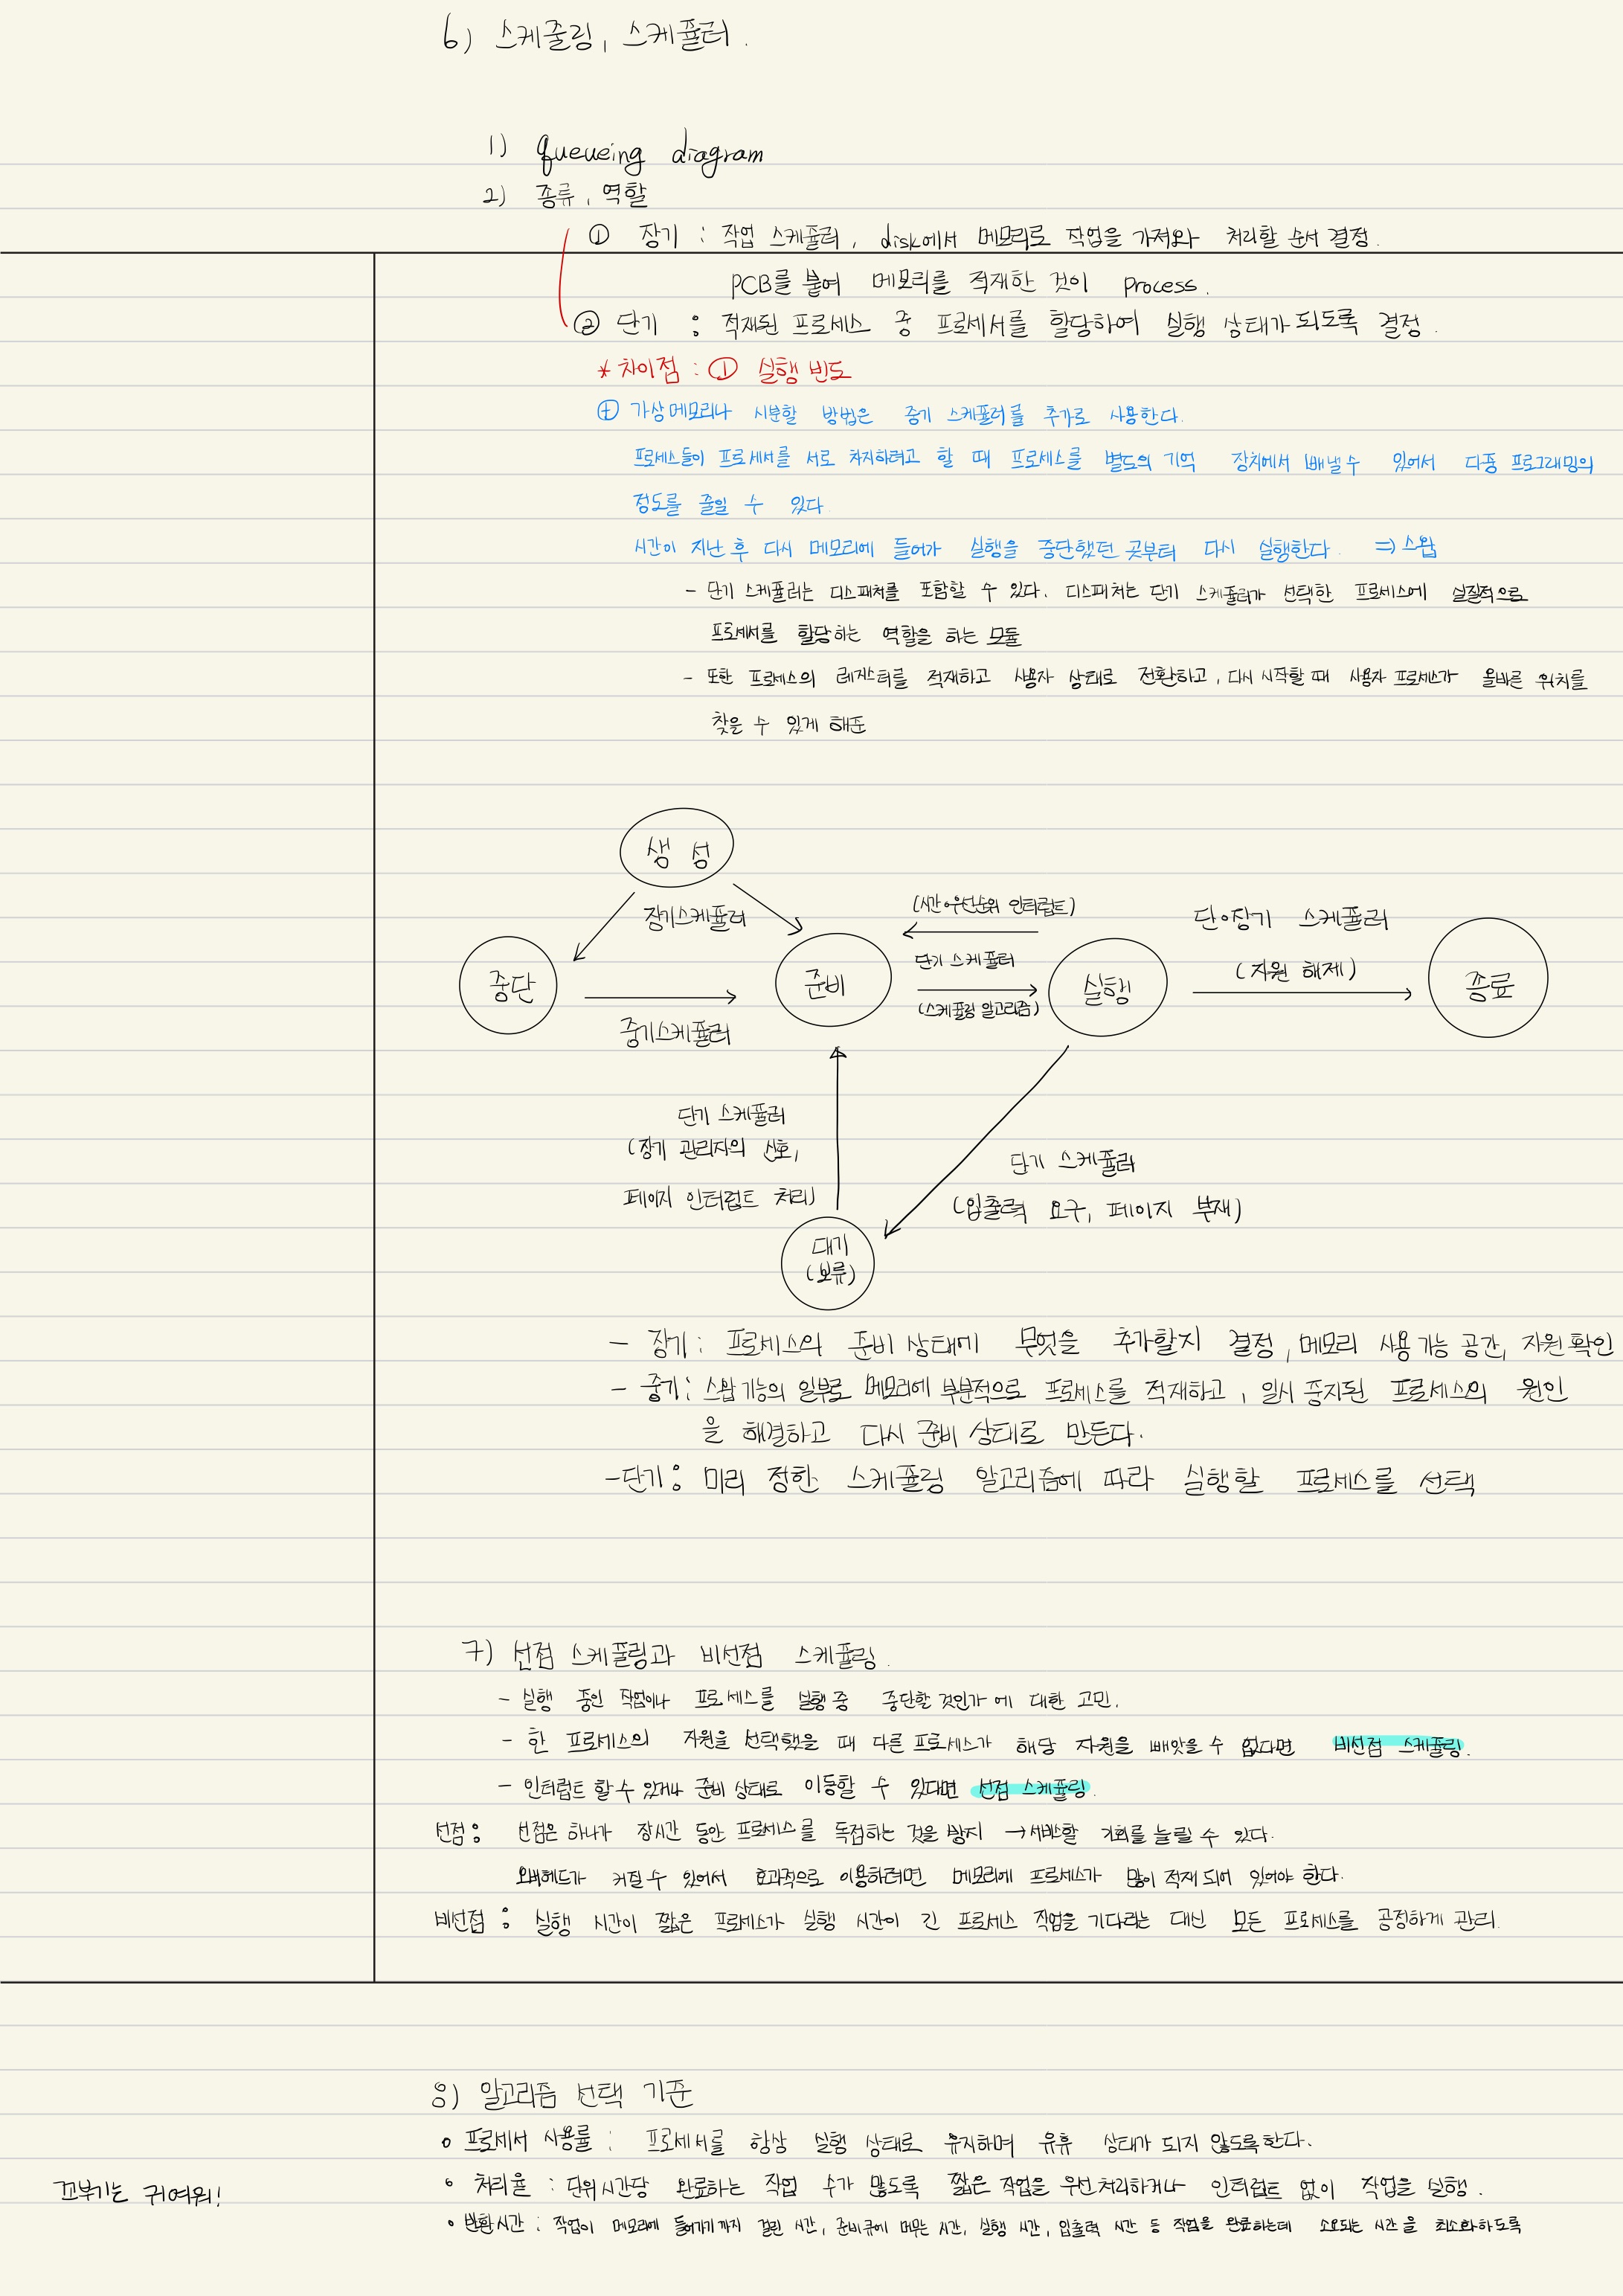 6) 스케줄링, 스케쥴러.
1) queueing diagram
2) 종류, 역할
① 장기 : 작업 스케쥴러, disk에서 메모리로 작업을 가져와 처리할 순서 결정.
PCB를 붙여 메모리를 적재한 것이 process.
② 단기 : 적재된 프로세스 중 프로세서를 할당하여 실행 상태가 되도록 결정.
* 차이점 : ① 실행 빈도
⊕ 가상메모리나 시분할 방법은 중기 스케쥴러를 추가로 사용한다.
프로세스들이 프로세서를 서로 차지하려고 할 때 프로세스를 별도의 기억 장치에서 빼낼 수 있어서 다중 프로그래밍의
정도를 줄일 수 있다.
시간이 지난 후 다시 메모리에 들어가 실행을 중단했던 곳부터 다시 실행한다. ⇒ 스왑
- 단기 스케쥴러는 디스패처를 포함할 수 있다. 디스패처는 단기 스케쥴러가 선택한 프로세스에 실질적으로
프로세서를 할당하는 역할을 하는 모듈
- 또한 프로세스의 레지스터를 적재하고 사용자 상태로 전환하고, 다시 시작할 때 사용자 프로세스가 올바른 위치를
찾을 수 있게 해준
생성
장기스케쥴러
(시간·우선순위 인터럽트)
단·장기 스케쥴러
중단
준비
단기 스케쥴러
실행
(자원 해제)
종료
(스케쥴링 알고리즘)
중기스케쥴러
단기 스케쥴러
(장기 관리자의 신호,
페이지 인터럽트 처리)
단기 스케쥴러
(입출력 요구, 페이지 부재)
대기
(보류)
- 장기 : 프로세스의 준비 상태에 무엇을 추가할지 결정, 메모리 사용 가능 공간, 자원 확인
- 중기 : 스왑 기능의 일부로 메모리에 부분적으로 프로세스를 적재하고, 일시 중지된 프로세스의 원인
을 해결하고 다시 준비 상태로 만든다.
- 단기 : 미리 정한 스케쥴링 알고리즘에 따라 실행할 프로세스를 선택
7) 선점 스케쥴링과 비선점 스케쥴링.
- 실행 중인 작업이나 프로세스를 실행 중 중단할 것인가에 대한 고민.
- 한 프로세스의 자원을 선택했을 때 다른 프로세스가 해당 자원을 빼앗을 수 없다면 비선점 스케쥴링.
- 인터럽트 할 수 있거나 준비 상태로 이동할 수 있다면 선점 스케쥴링.
선점 : 선점은 하나가 장시간 동안 프로세스를 독점하는 것을 방지 → 서비스할 기회를 늘릴 수 있다.
오버헤드가 커질 수 있어서 효과적으로 이용하려면 메모리에 프로세스가 많이 적재 되어 있어야 한다.
비선점 : 실행 시간이 짧은 프로세스가 실행 시간이 긴 프로세스 작업을 기다리는 대신 모든 프로세스를 공정하게 관리.
8) 알고리즘 선택 기준
• 프로세서 사용률 : 프로세서를 항상 실행 상태로 유지하며 유휴 상태가 되지 않도록 한다.
• 처리율 : 단위시간당 완료하는 작업 수가 많도록 짧은 작업을 우선처리하거나 인터럽트 없이 작업을 실행.
꼬부기는 귀여워!
• 반환시간 : 작업이 메모리에 들어가기까지 걸린 시간, 준비큐에 머무는 시간, 실행 시간, 입출력 시간 등 작업을 완료하는데 소요되는 시간을 최소화하도록